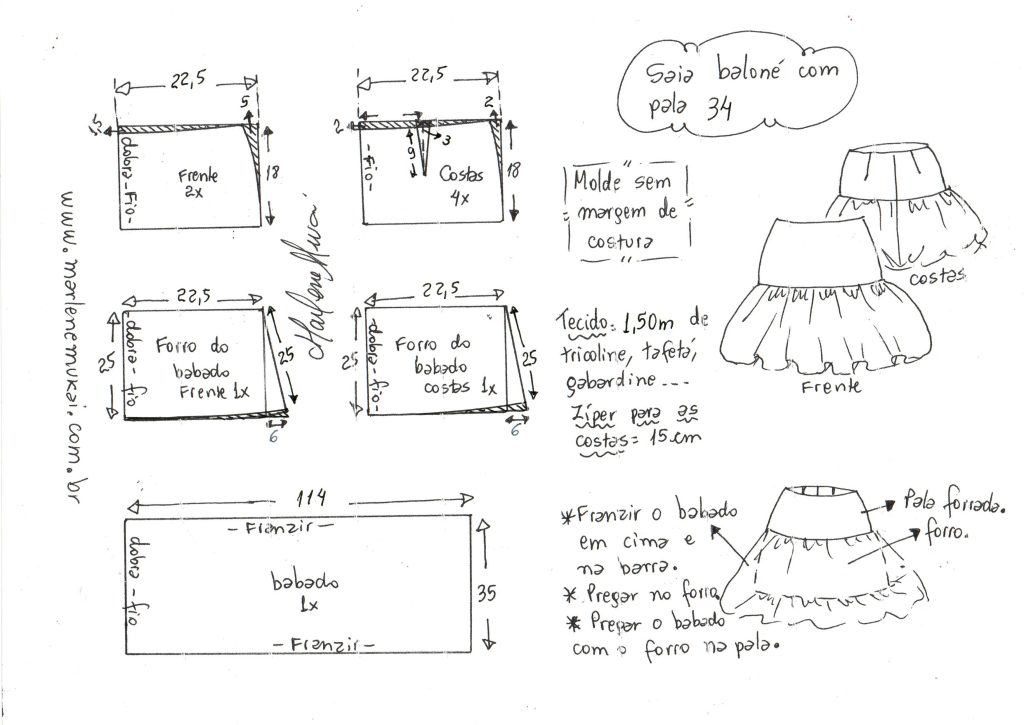 Saia baloné com
pala 34
22,5
5
1,5
18
dobra-Fio-
Frente
2x
22,5
2
2
9
3
18
-Fio-
Costas
4x
Molde sem
margem de
costura
costas
Frente
www.marlenemukai.com.br
Marlene Mukai
22,5
25
25
dobra-fio
Forro do
babado
Frente 1x
6
22,5
25
25
dobra-fio-
Forro do
babado
costas 1x
6
Tecido= 1,50m de
tricoline, tafetá,
gabardine....
Zíper para as
costas= 15cm
114
- Franzir -
dobra-fio
babado
1x
35
- Franzir -
*Franzir o babado
em cima e
na barra.
* Pregar no forro.
* Pregar o babado
com o forro na pala.
Pala forrada.
forro.